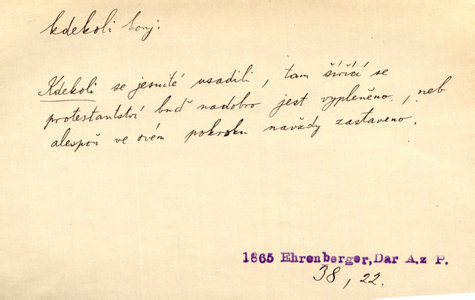 kdekoli konj.
Kdekoli se jesuité usadili, tam šířící se
protestantství buď nadobro jest vypleněno, neb
alespoň ve svém pokroku navždy zastaveno.
1865 Ehrenberger, Dar A. z P.
38, 22.